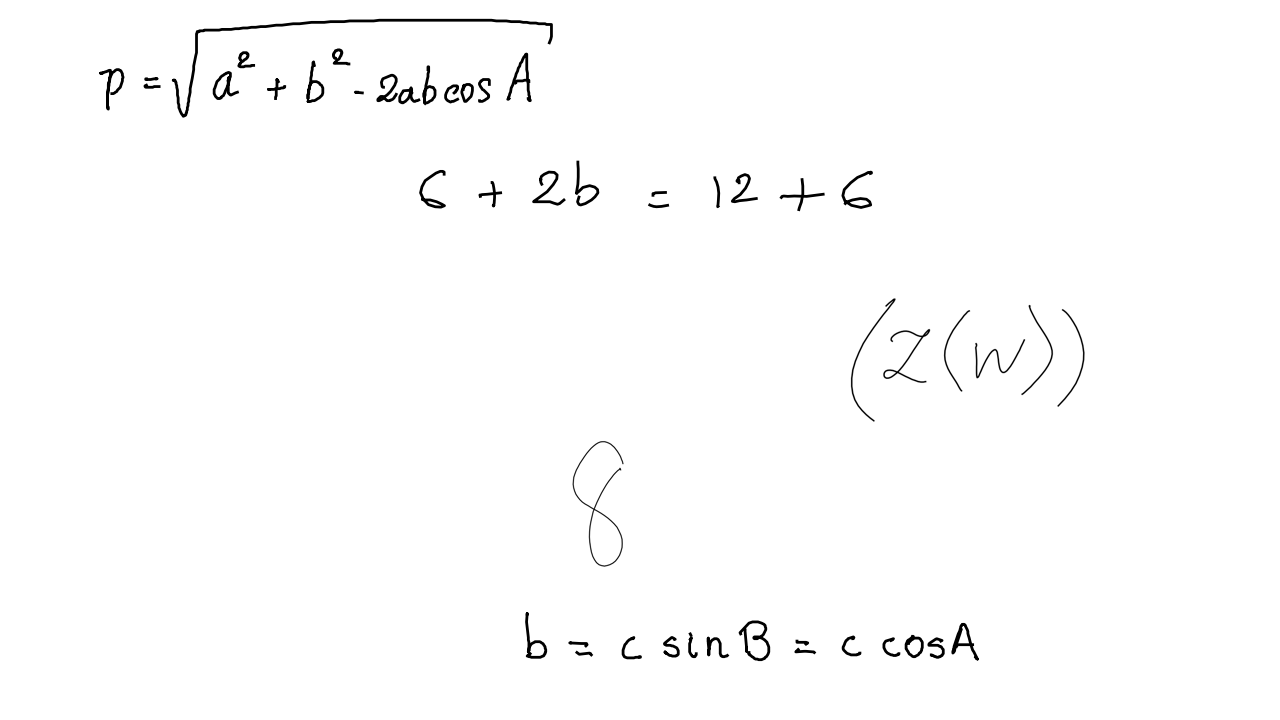 p = √(a² + b² - 2ab cos A)
6 + 2b = 12 + 6
(z(w))
8
b = c sin B = c cos A